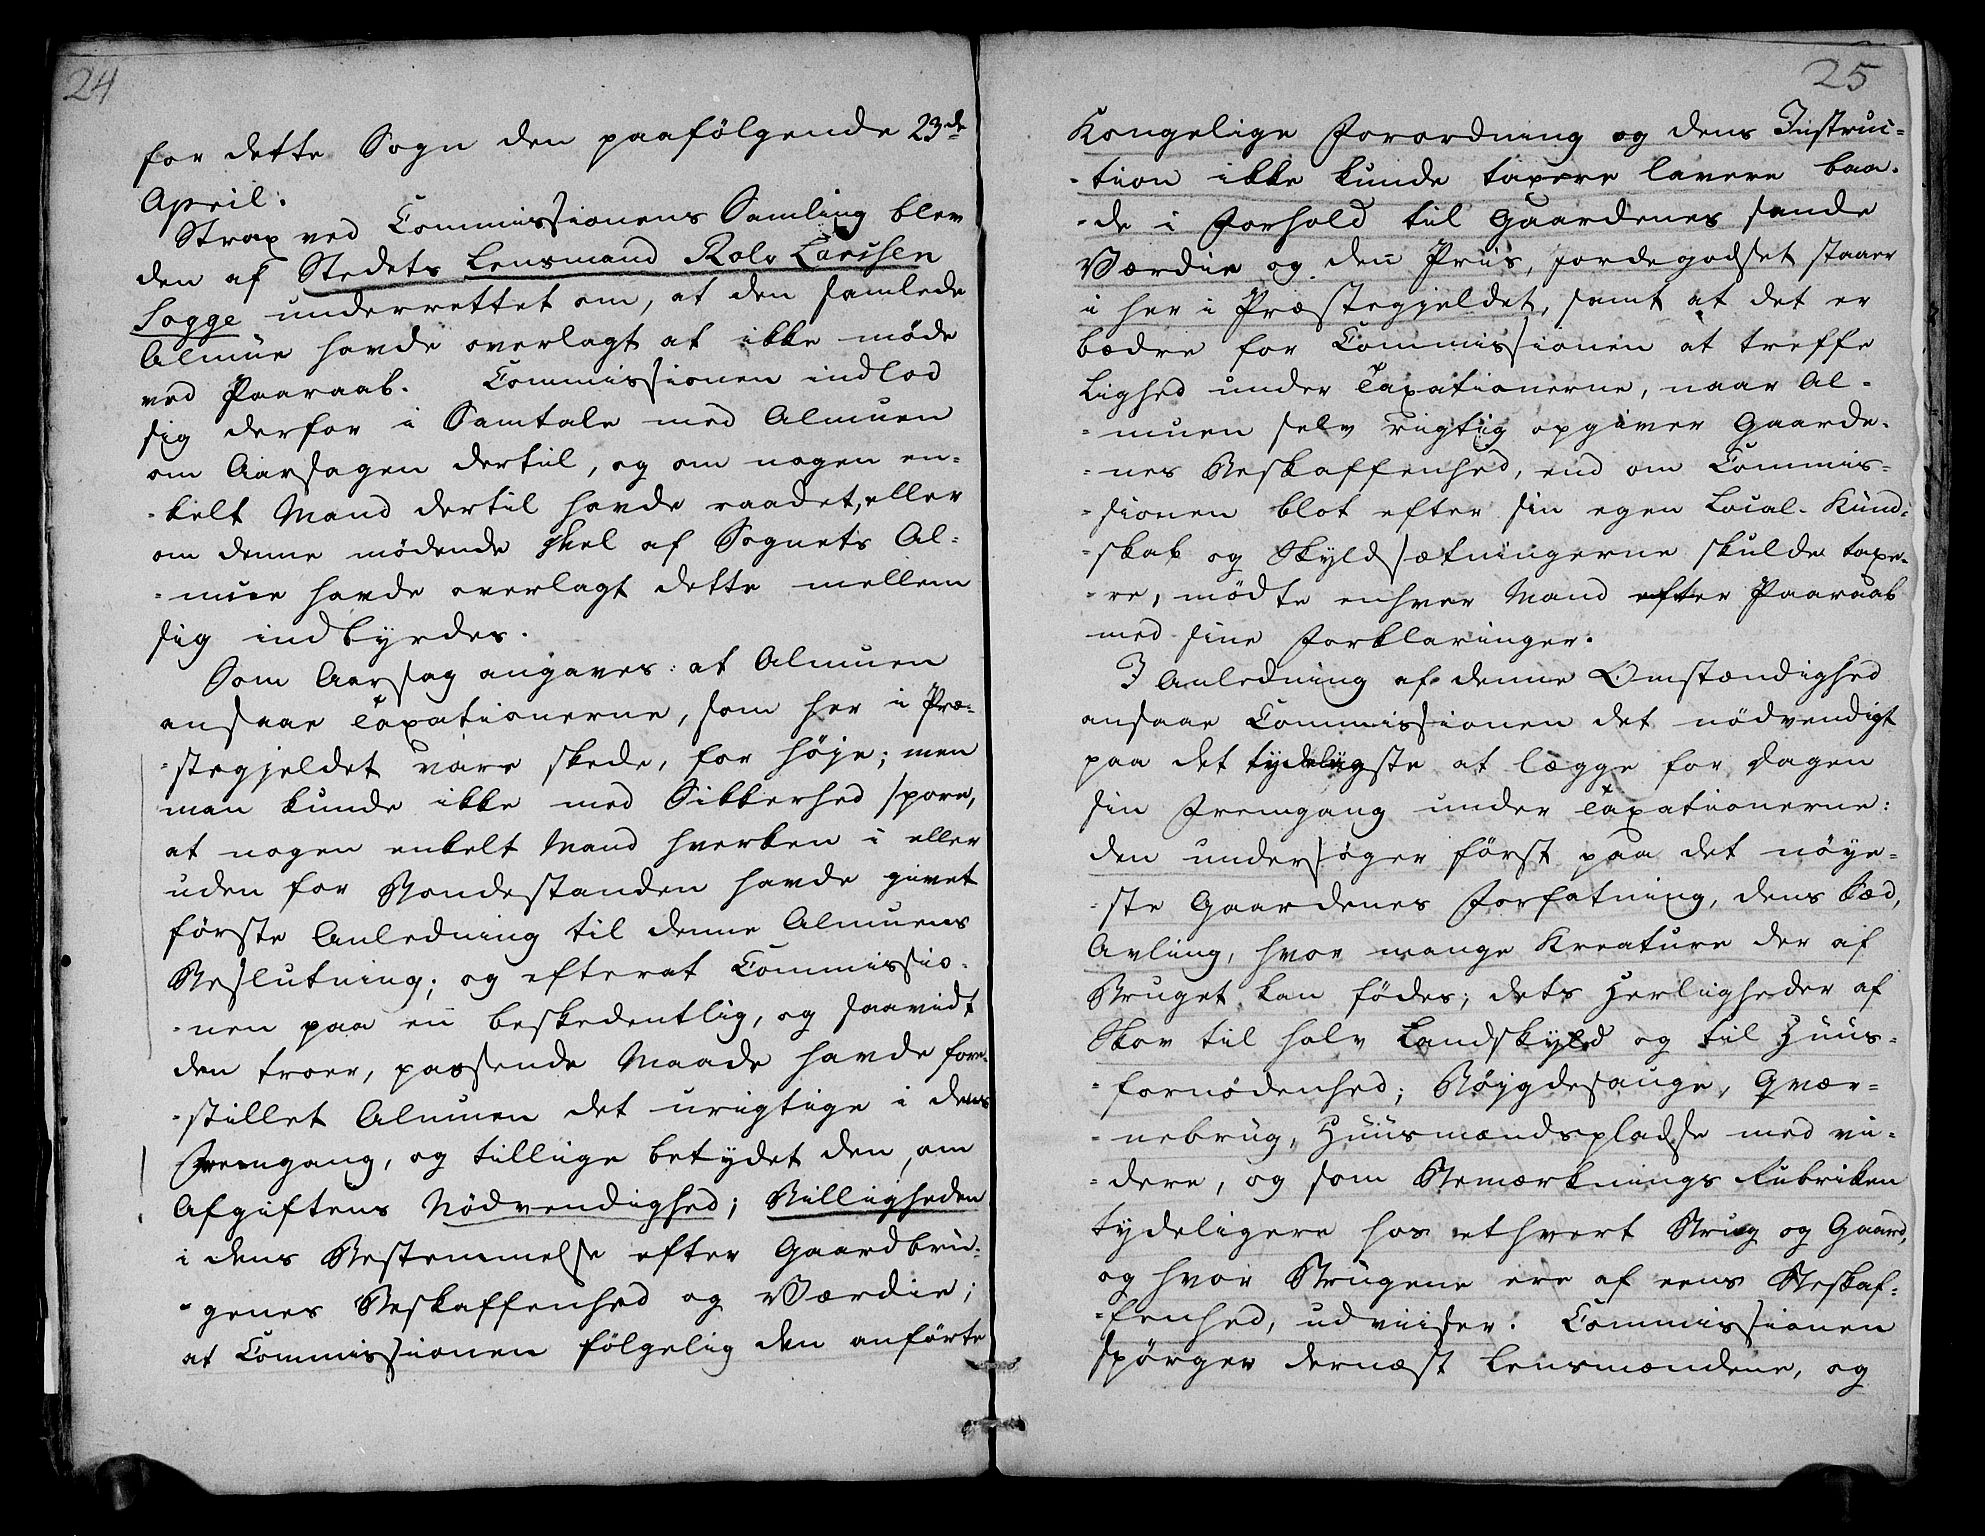 24
for dette Sogn den paafölgende 23de
April.
Strax ved Commissionens Samling blev
den af Stedets Lensmand Rolv Larssen
Sogge underrettet om, at den samlede
Almue havde overlagt at ikke møde
ved Paaraab. Commissionen indlod
sig derfor i Samtale med Almuen
om Aarsagen dertil, og om nogen en-
-kelt Mand dertil havde raadet, eller
om denne mødende Deel af Sognets Al-
-mue havde overlagt dette mellem
sig indbyrdes.
Som Aarsag angaves: at Almuen
ansaae Taxationerne, som her i Præ-
-stegjeldet vare skede, for høje; men
man kunde ikke med Sikkerhed spore,
at nogen enkelt Mand hverken i eller
uden for Bondestanden havde givet
förste Anledning til denne Almuens
Beslutning; og efterat Commissio-
-nen paa en beskedentlig, og saavidt
den troer, passende Maade havde fore-
-stillet Almuen det urigtige i dens
Fremgang, og tillige betydet den, om
Afgiftens Nödvendighed; Billigheden
i dens Bestemmelse efter Gaardbru-
-genes Beskaffenhed og Værdie;
at Commissionen fölgelig den anförte
25
Kongelige Forordning og dens Instruc-
-tion ikke kunde taxere lavere baa-
-de i Forhold til Gaardenes sande
Værdie og den Priis, Jordegodset staaer
i her i Præstegjeldet, samt at det er
bedre for Commissionen at treffe
Lighed under Taxationerne, naar Al-
-muen selv rigtig opgiver Gaarde-
-nes Beskaffenhed, end om Commis-
-sionen blot efter sin egen Local-Kund-
-skab og Skyldsætningerne skulde taxe-
-re, mødte enhver Mand efter Paaraab
med sine Forklaringer.
I Anledning af denne Omstændighed
ansaae Commissionen det nödvendigt
paa det tydeligste at lægge for Dagen
sin Fremgang under Taxationerne:
den undersøger först paa det nöye-
-ste Gaardenes Forfatning, dens Sæd,
Avling, hvor mange Kreature der af
Bruget kan födes; dets Herligheder af
Skov til halv Landskyld og til Huus-
-fornödenhed; Böygdesauge, Qvær-
-nebrug, Huusmandspladse med vi-
-dere, og som Bemærknings Rubriken
tydeligere hos ethvert Brug og Gaard,
og hvor Brugene ere af eens Beskaf-
-fenhed, udviiser. Commissionen
spörger dernæst Lensmændene, og